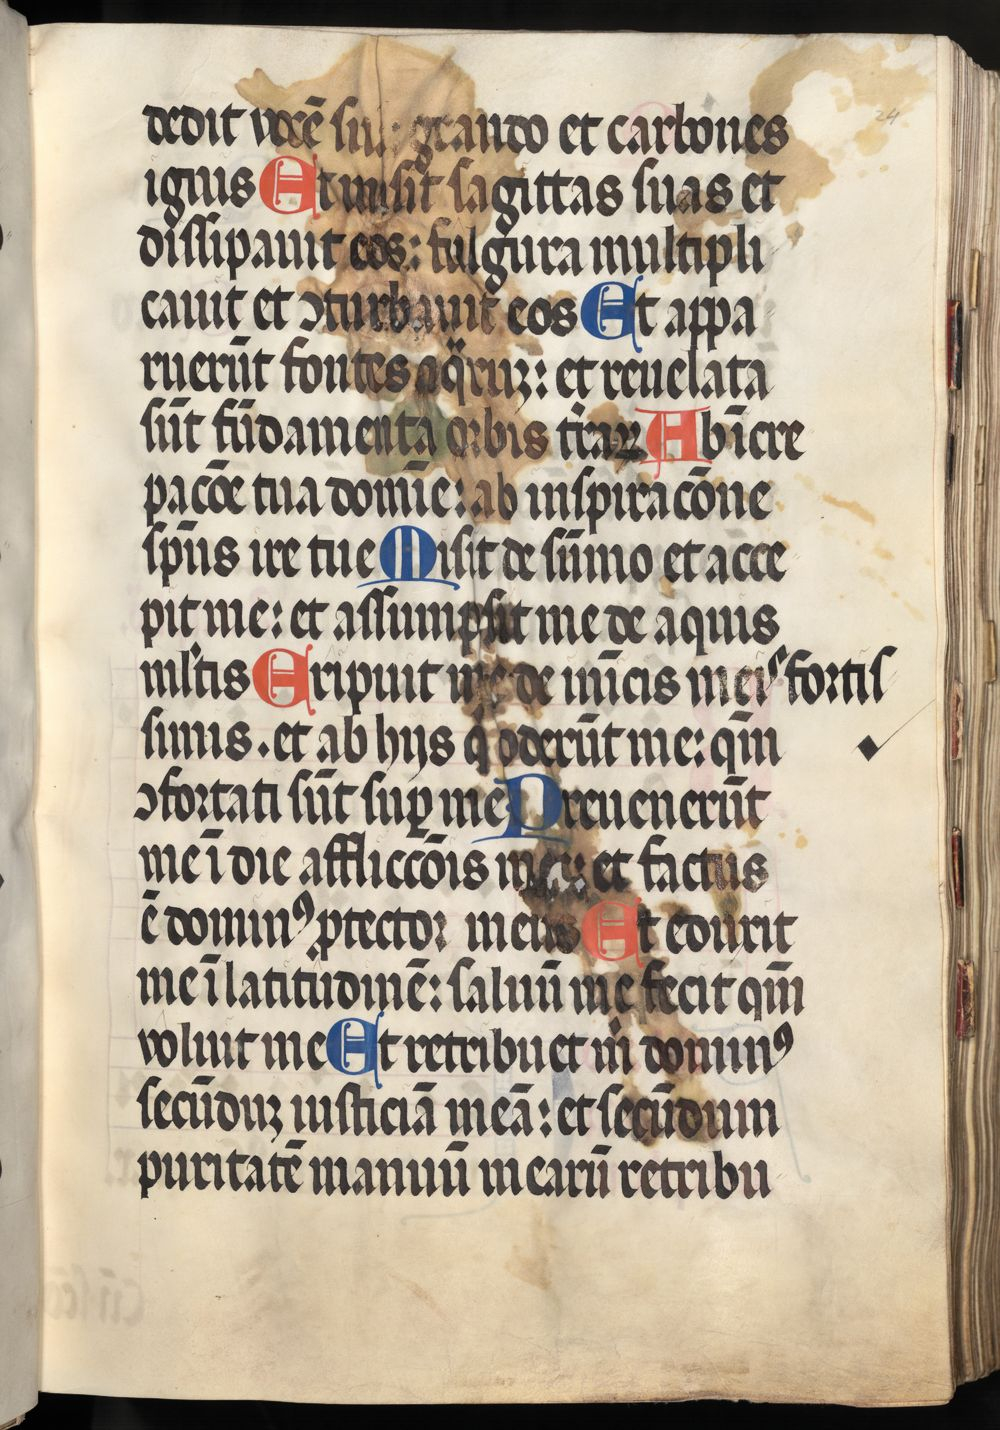 24
dedit vocē suā: grando et carbones
ignis Et misit sagittas suas et
dissipauit eos: fulgura multipli
cauit et ꝯturbauit eos Et appa
ruerūt fontes aqͣruꝫ: et reuelata
sūt fūdamenta orbis t̄raꝝ Ab īcre
pac̄oe tua domīe: ab inspirac̄one
sp̄us ire tue Misit de sūmo et acce
pit me: et assumpsit me de aquis
ml̄tis Eripuit me de inīcis meis fortis
simis . et ab hijs q̄ oderūt me: qm̄
ꝯfortati sūt suꝑ me Preuenerūt
me ī die afflicc̄ois mee: et factus
ē dominꝰ ꝓtector meus Et eduxit
me ī latitudinē: saluū me fecit qm̄
voluit me Et retribuet m̄i dominꝰ
secūduꝫ iusticiā meā: et secūdum
puritatē manuū mearū retribu